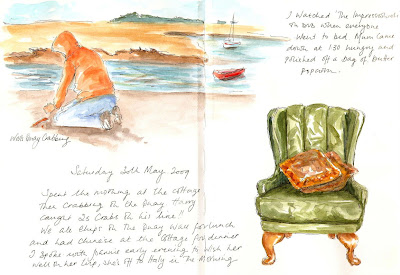 I watched The Impressionists
on DVD when everyone
went to bed Mum came
down at 1 30 hungry and
polished off a bag of butter
popcorn.
Quay Crabbing
Saturday 30th May 2009
Spent the morning at the cottage
Then Crabbing on the Quay Harry
caught 25 Crabs on his line!!
We ate chips on The Quay Wall for lunch
and had chinese at the Cottage for dinner
I spoke with early evening to wish her
well on her trip, she's off to Italy in the morning